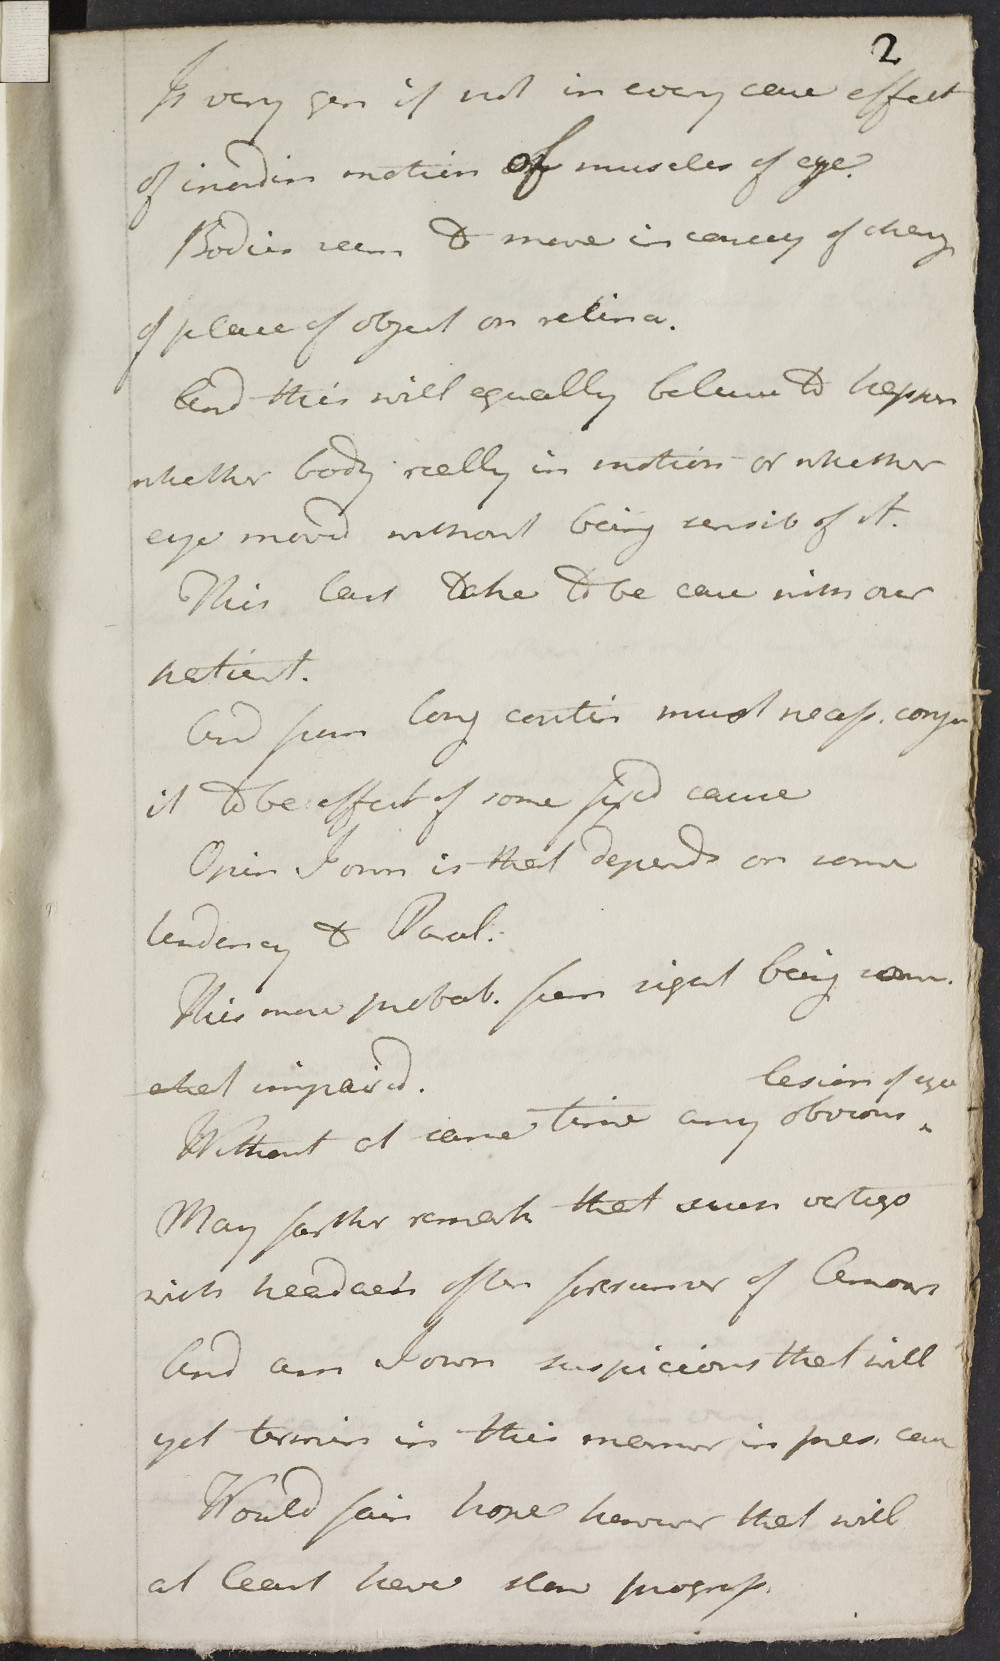 2
Is very gen if not in every case effect
of inordin motion of muscles of eye.
Bodies seem to move in conseq of chang
of place of object on retina.
And this will equally believe to happen
whether body really in motion or whether
eye mov'd without being sensib of it.
This last take to be case with our
patient.
And from long contin must necess. conje
it to be effect of some fix'd cause
Opin I own is that depends on some
tendency to Paral:
This more probab. from sight being somew.
what impair'd.
lesion of eye
Without at same time any obvious
May farther remark that even vertigo
with headach often forerunner of Amaur
And am I own suspicious that will
yet termin in this manner in pres. case
Would fain hope however that will
at least have slow progress.